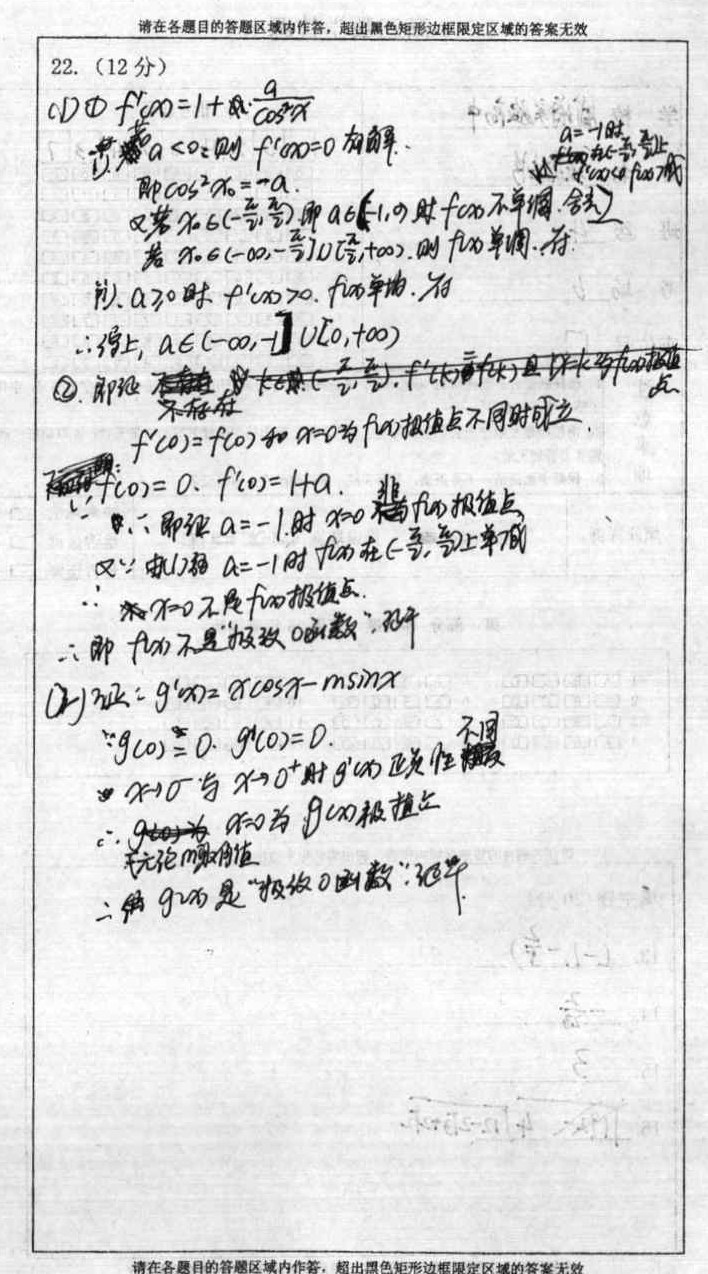 请在各题目的答题区域内作答，超出黑色矩形边框限定区域的答案无效
22.（12分）
(1) ① f'(x)=1+ a/cos²x
i). 若 a<0, 则 f'(x)=0 有解.
a=-1时
f(x)在(-π/2, π/2)上
f'(x)<0 f(x)↓减
即cos²x₀=-a.
又若 x₀∈(-π/2, π/2) 即 a∈(-1,0)时 f(x)不单调. 舍去
若 x₀∈(-∞,-π/2]∪[π/2,+∞). 则 f(x)单调. 符.
ii). a≥0时 f'(x)>0. f(x)单增. 符
∴综上, a∈(-∞,-1]∪[0,+∞)
②. 即证
不存在
f'(0)=f(0) 和 x=0为f(x)极值点不同时成立.
f(0)=0. f'(0)=1+a.
∴即证 a=-1时 x=0 非f(x)极值点
又∵由(1)得 a=-1时 f(x)在(-π/2, π/2)上单减
∴ x=0不是f(x)极值点.
∴即 f(x)不是"极致0函数". 证毕
(2) 证: g'(x)=xcosx-msinx
∵g(0)=0. g'(0)=0
x→0⁻与 x→0⁺时 g'(x)正负性不同
∴ x=0为g(x)极值点
无论m取何值
∴ g(x)是"极致0函数". 证毕.
请在各题目的答题区域内作答，超出黑色矩形边框限定区域的答案无效